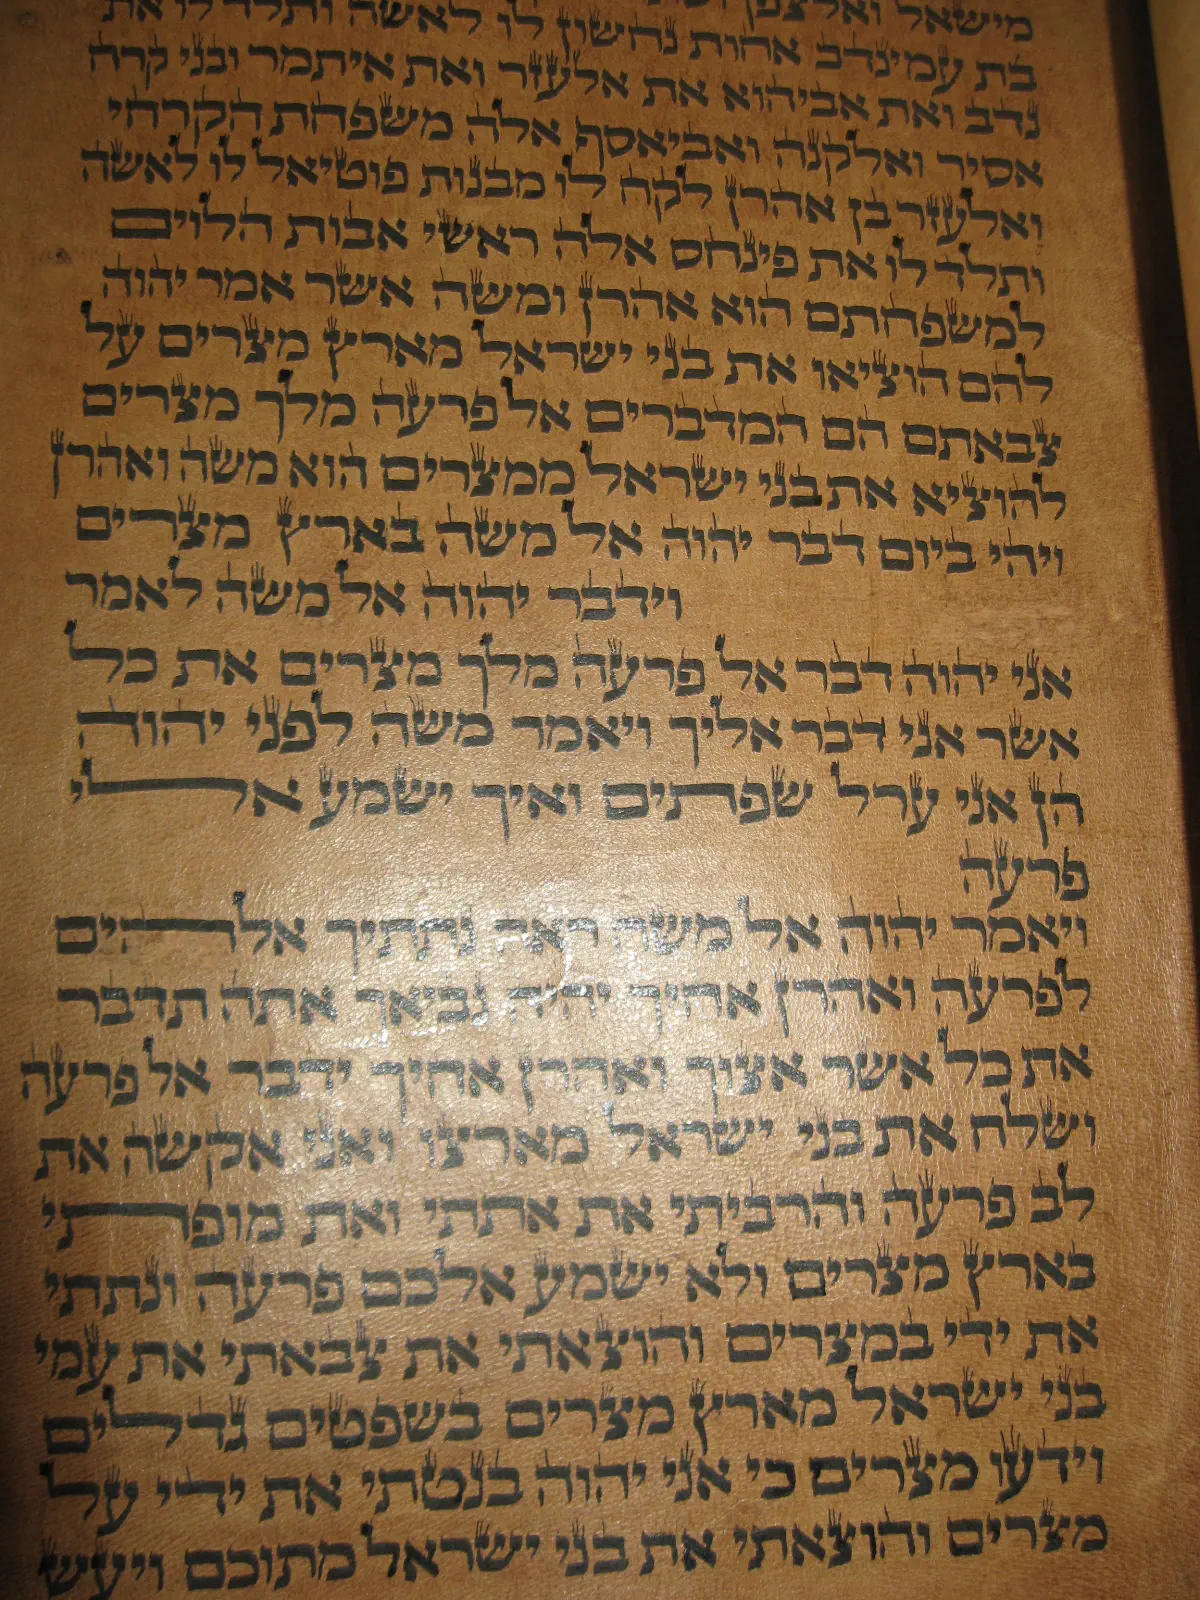 מישאל ואלצפן
בת עמינדב אחות נחשון לו לאשה ותלד לו את
נדב ואת אביהוא את אלעזר ואת איתמר ובני קרח
אסיר ואלקנה ואביאסף אלה משפחת הקרחי
ואלעזר בן אהרן לקח לו מבנות פוטיאל לו לאשה
ותלד לו את פינחס אלה ראשי אבות הלוים
למשפחתם הוא אהרן ומשה אשר אמר יהוה
להם הוציאו את בני ישראל מארץ מצרים על
צבאתם הם המדברים אל פרעה מלך מצרים
להוציא את בני ישראל ממצרים הוא משה ואהרן
ויהי ביום דבר יהוה אל משה בארץ מצרים
וידבר יהוה אל משה לאמר
אני יהוה דבר אל פרעה מלך מצרים את כל
אשר אני דבר אליך ויאמר משה לפני יהוה
הן אני ערל שפתים ואיך ישמע אלי
פרעה
ויאמר יהוה אל משה ראה נתתיך אלהים
לפרעה ואהרן אחיך יהיה נביאך אתה תדבר
את כל אשר אצוך ואהרן אחיך ידבר אל פרעה
ושלח את בני ישראל מארצו ואני אקשה את
לב פרעה והרביתי את אתתי ואת מופתי
בארץ מצרים ולא ישמע אלכם פרעה ונתתי
את ידי במצרים והוצאתי את צבאתי את עמי
בני ישראל מארץ מצרים בשפטים גדלים
וידעו מצרים כי אני יהוה בנטתי את ידי על
מצרים והוצאתי את בני ישראל מתוכם ויעש